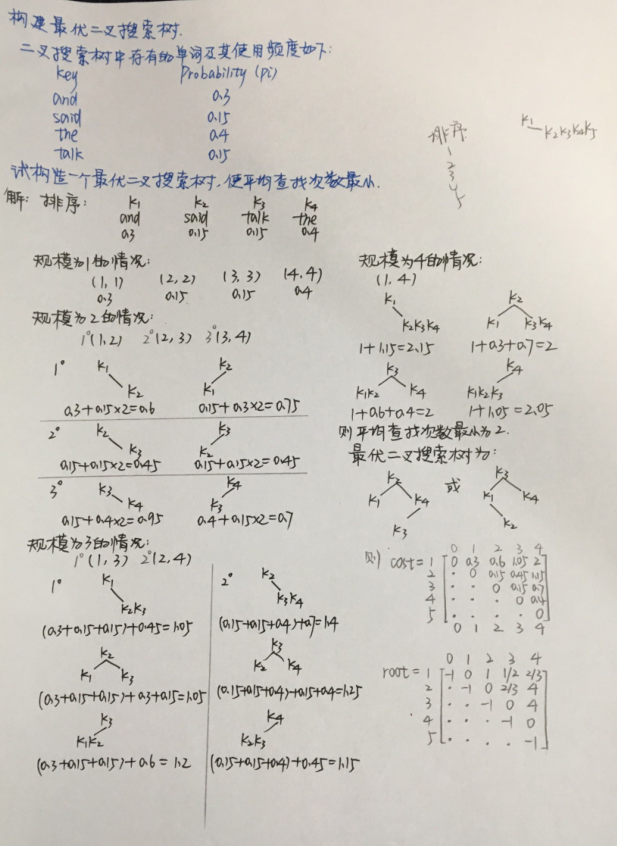 构建最优二叉搜索树.
二叉搜索树中存有的单词及其使用频度如下:
key Probability (pi)
and 0.3
said 0.15
the 0.4
talk 0.15
试构造一个最优二叉搜索树,使平均查找次数最小.
排序
1
2
3
4
5
K1
K2K3K4K5
解: 排序: K1 K2 K3 K4
and said talk the
0.3 0.15 0.15 0.4
规模为1的情况:
(1,1) (2,2) (3,3) (4,4)
0.3 0.15 0.15 0.4
规模为2的情况:
1°(1,2) 2°(2,3) 3°(3,4)
1° K1 K2
K2 K1
0.3+0.15×2=0.6 0.15+0.3×2=0.75
2° K2 K3
K3 K2
0.15+0.15×2=0.45 0.15+0.15×2=0.45
3° K3 K4
K4 K3
0.15+0.4×2=0.95 0.4+0.15×2=0.7
规模为3的情况:
1°(1,3) 2°(2,4)
1° K1
K2K3
(0.3+0.15+0.15)+0.45=1.05
K2
K1 K3
(0.3+0.15+0.15)+0.3+0.15=1.05
K3
K1K2
(0.3+0.15+0.15)+0.6=1.2
2° K2
K3K4
(0.15+0.15+0.4)+0.7=1.4
K3
K2 K4
(0.15+0.15+0.4)+0.15+0.4=1.25
K4
K2K3
(0.15+0.15+0.4)+0.45=1.15
规模为4的情况:
(1,4)
K1 K2
K2K3K4 K1 K3K4
1+1.15=2.15 1+0.3+0.7=2
K3 K4
K1K2 K4 K1K2K3
1+0.6+0.4=2 1+1.05=2.05
则平均查找次数最小为2.
最优二叉搜索树为:
K2 或 K3
K1 K4 K1 K4
K3 K2
则 cost=
0 1 2 3 4
1 0 0.3 0.6 1.05 2
2 · 0 0.15 0.45 1.15
3 · · 0 0.15 0.7
4 · · · 0 0.4
5 · · · · 0
0 1 2 3 4
root=
0 1 2 3 4
1 -1 0 1 1/2 2/3
2 · -1 0 2/3 4
3 · · -1 0 4
4 · · · -1 0
5 · · · · -1